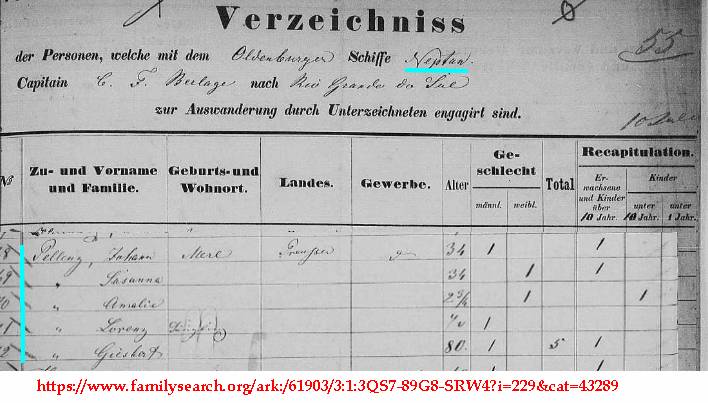 Verzeichniss
55
der Personen, welche mit dem Oldenburger Schiffe Neptun.
Capitain C. F. Berlage nach Rio Grande do Sul
zur Auswanderung durch Unterzeichneten engagirt sind.
10 Juli
№ Zu- und Vorname und Familie. Geburts- und Wohnort. Landes. Gewerbe. Alter Geschlecht männl. weibl. Total Recapitulation. Erwachsene und Kinder über 10 Jahr. Kinder unter 10 Jahr. unter 1 Jahr.
8 Pellenz, Johann Merl Preußen 34 1 1
69 " Susanna 34 1 1
70 " Amalie 2 3/4 1 1
" Lorenz 1
" Giesbert 80. 1 5 1
https://www.familysearch.org/ark:/61903/3:1:3QS7-89G8-SRW4?i=229&cat=43289